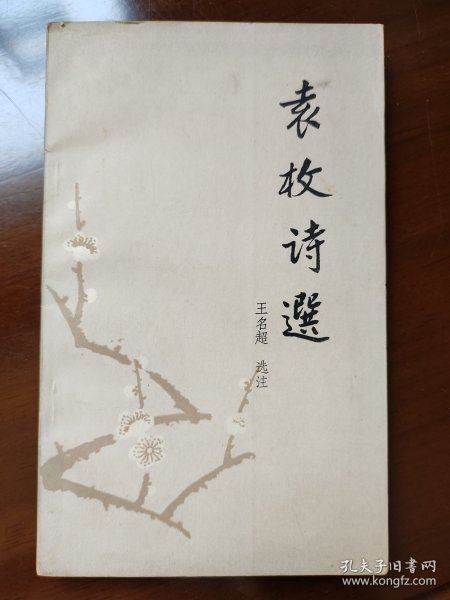 袁枚诗選
王名超 选注
孔夫子旧书网
www.kongfz.com